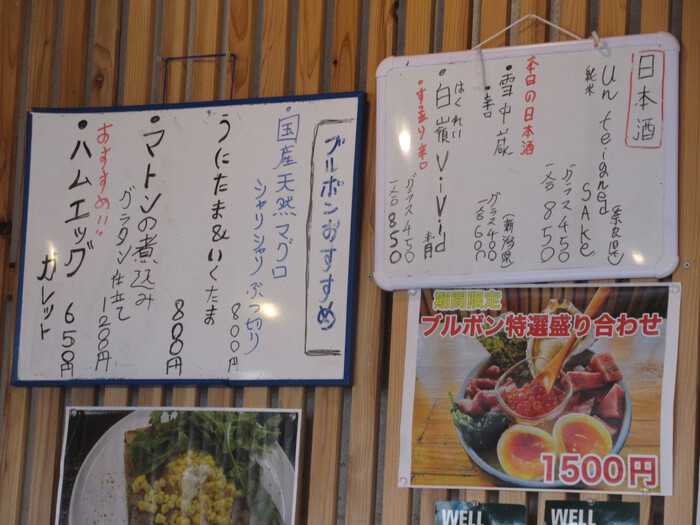 ブルボンおすすめ
・国産天然マグロ
シャリシャリぶつ切り
800円
うにたま&いくたま
800円
・マトンの煮込み
グラタン仕立て
1200円
おすすめ!!
・ハムエッグ
ガレット
650円
日本酒
un teigned
SAKe
(奈良県)
純米
グラス 450
一合 850
本日の日本酒
・雪中蔵
辛口
(新潟県)
グラス 400
一合 600
はくれい
・白嶺 ViVid
・すっきり辛口
グラス 450
一合 850
期間限定
ブルボン特選盛り合わせ
1500円
WELL
WELL